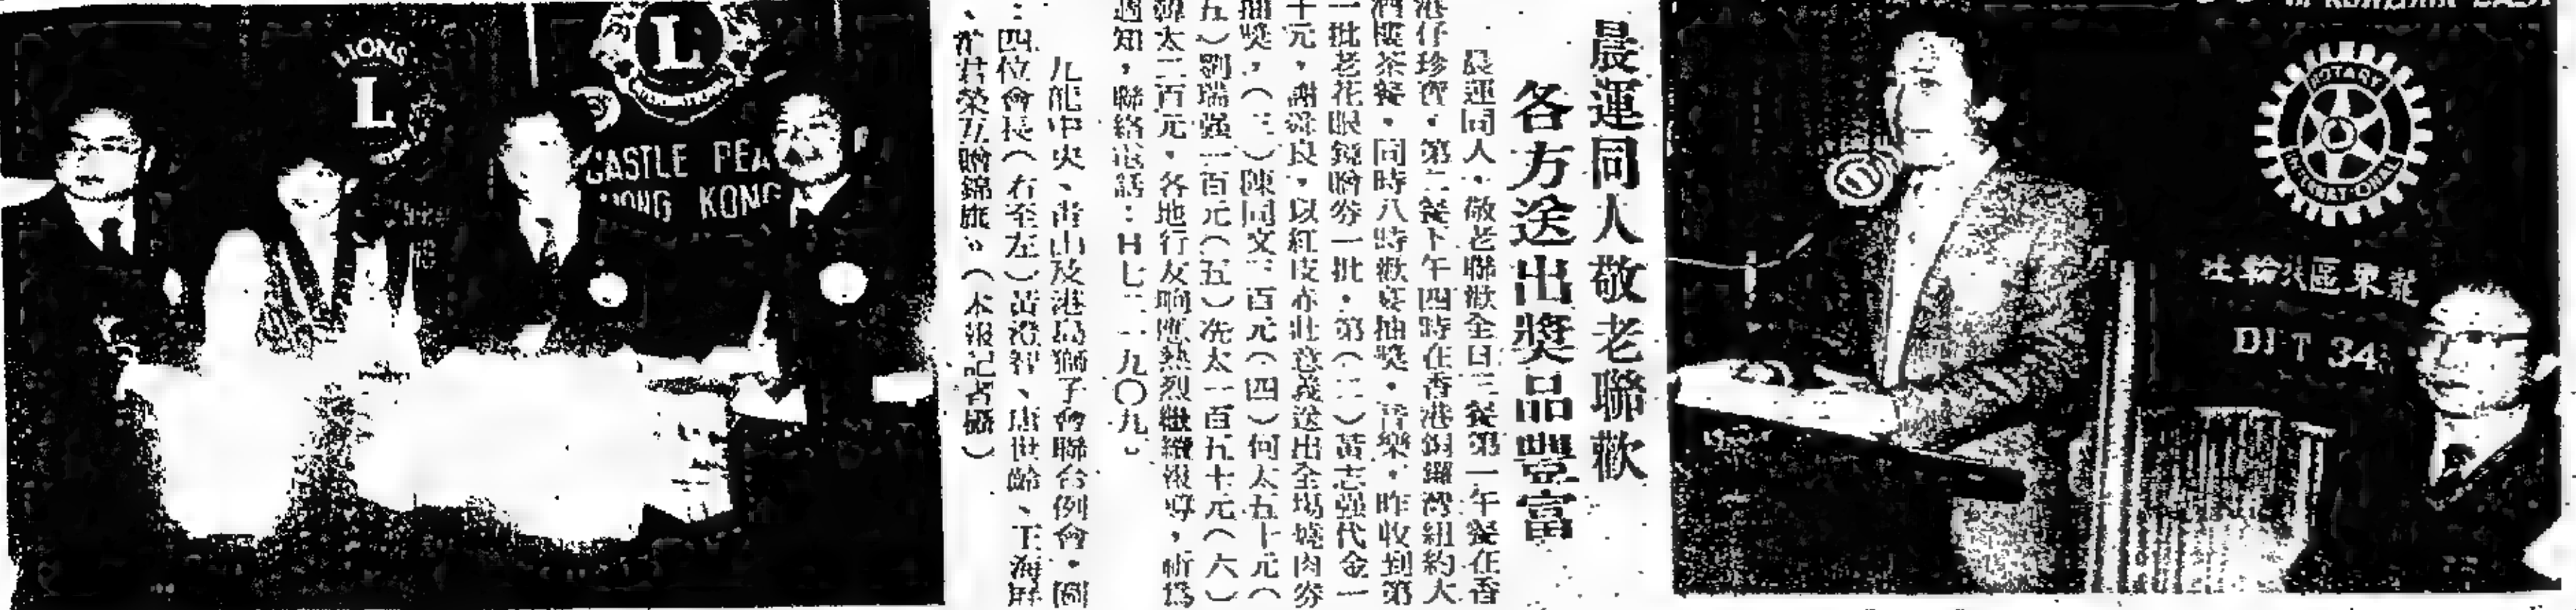 晨運同人敬老聯歡
各方送出獎品豐富
晨運同人，敬老聯歡全日三餐第一午餐在香
港仔珍寶，第二餐下午四時在香港銅鑼灣紐約大
酒樓茶餐，同時八時歡宴抽獎，音樂，昨收到第
一批老花眼鏡贈券一批，第（二）黃志强代金一
十元，謝 良，以紅皮赤壯意義送出全場燒肉券
抽獎，（三）陳同文三百元（四）何太五十元（
五）劉瑞强一百元（五）冼太一百五十元（六）
太二百元，各地行友响應熱烈繼續報導，祈爲
週知，聯絡電話：H七二一九〇九。
九龍中央、青山及港島獅子會聯合例會，圖
：四位會長（右至左）黃 智、 世齡、王海
、 君榮互贈錦旗。（本報記者攝）
LIONS
L
L
CASTLE PEA
HONG KONG
ROTARY
INTERNATIONAL
龍東區扶輪社
DIST 34